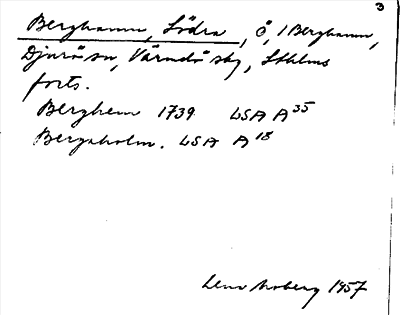 3
Berghamn, Södra, Ö, i Berghamn,
Djurö sn, Värmdö skg, Sthlms
forts.
Berghem 1739 LSA A35
Bergsholm. LSA A18
Lena Moberg 1957